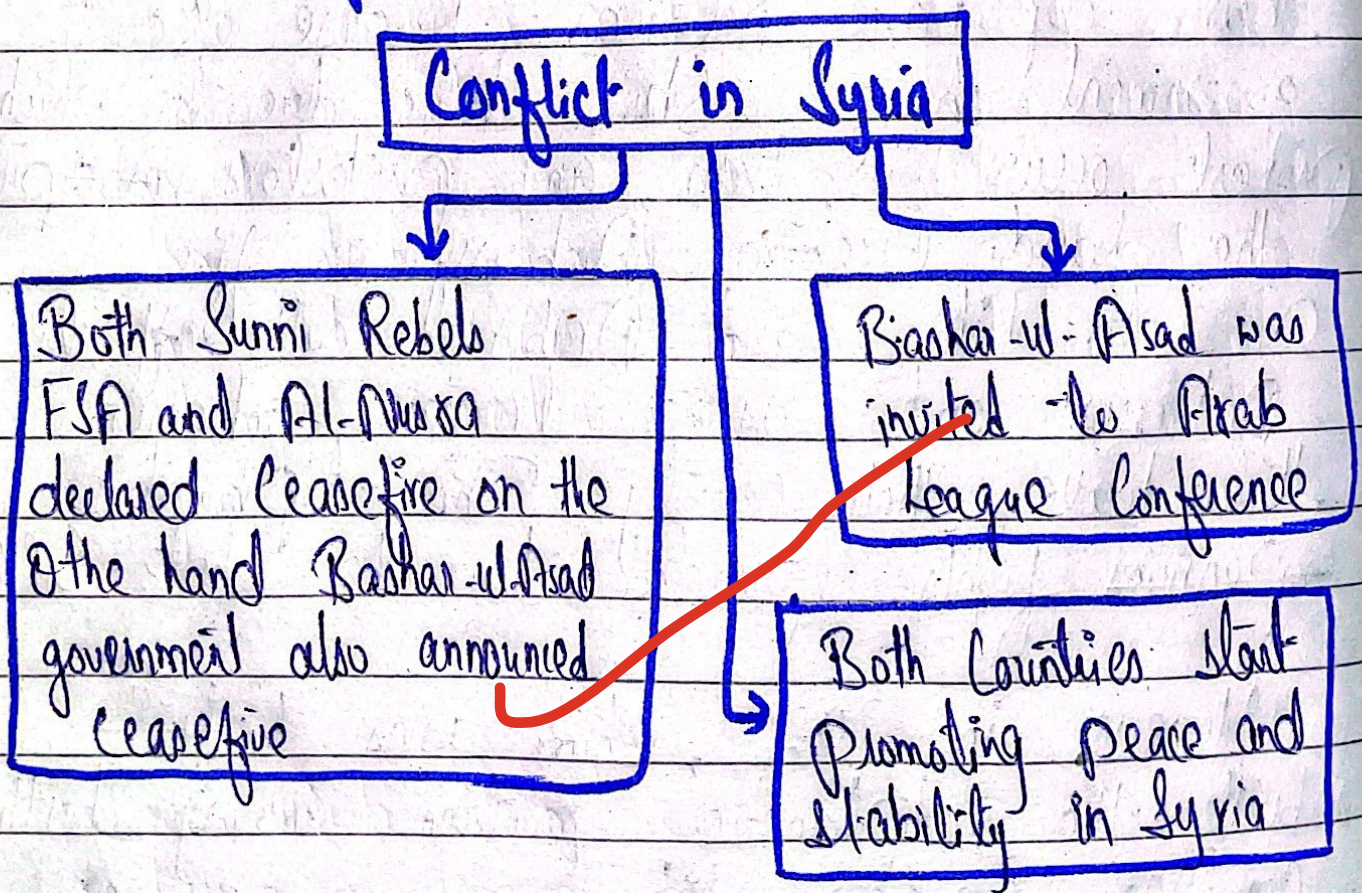 Conflict in Syria
Both Sunni Rebels
FSA and Al-Nusra
declared Ceasefire on the
Othe hand Bashar-ul-Asad
government also announced
Ceasefire
Bashar-ul-Asad was
invited to Arab
League Conference
Both Countries start
Promoting peace and
stability in Syria